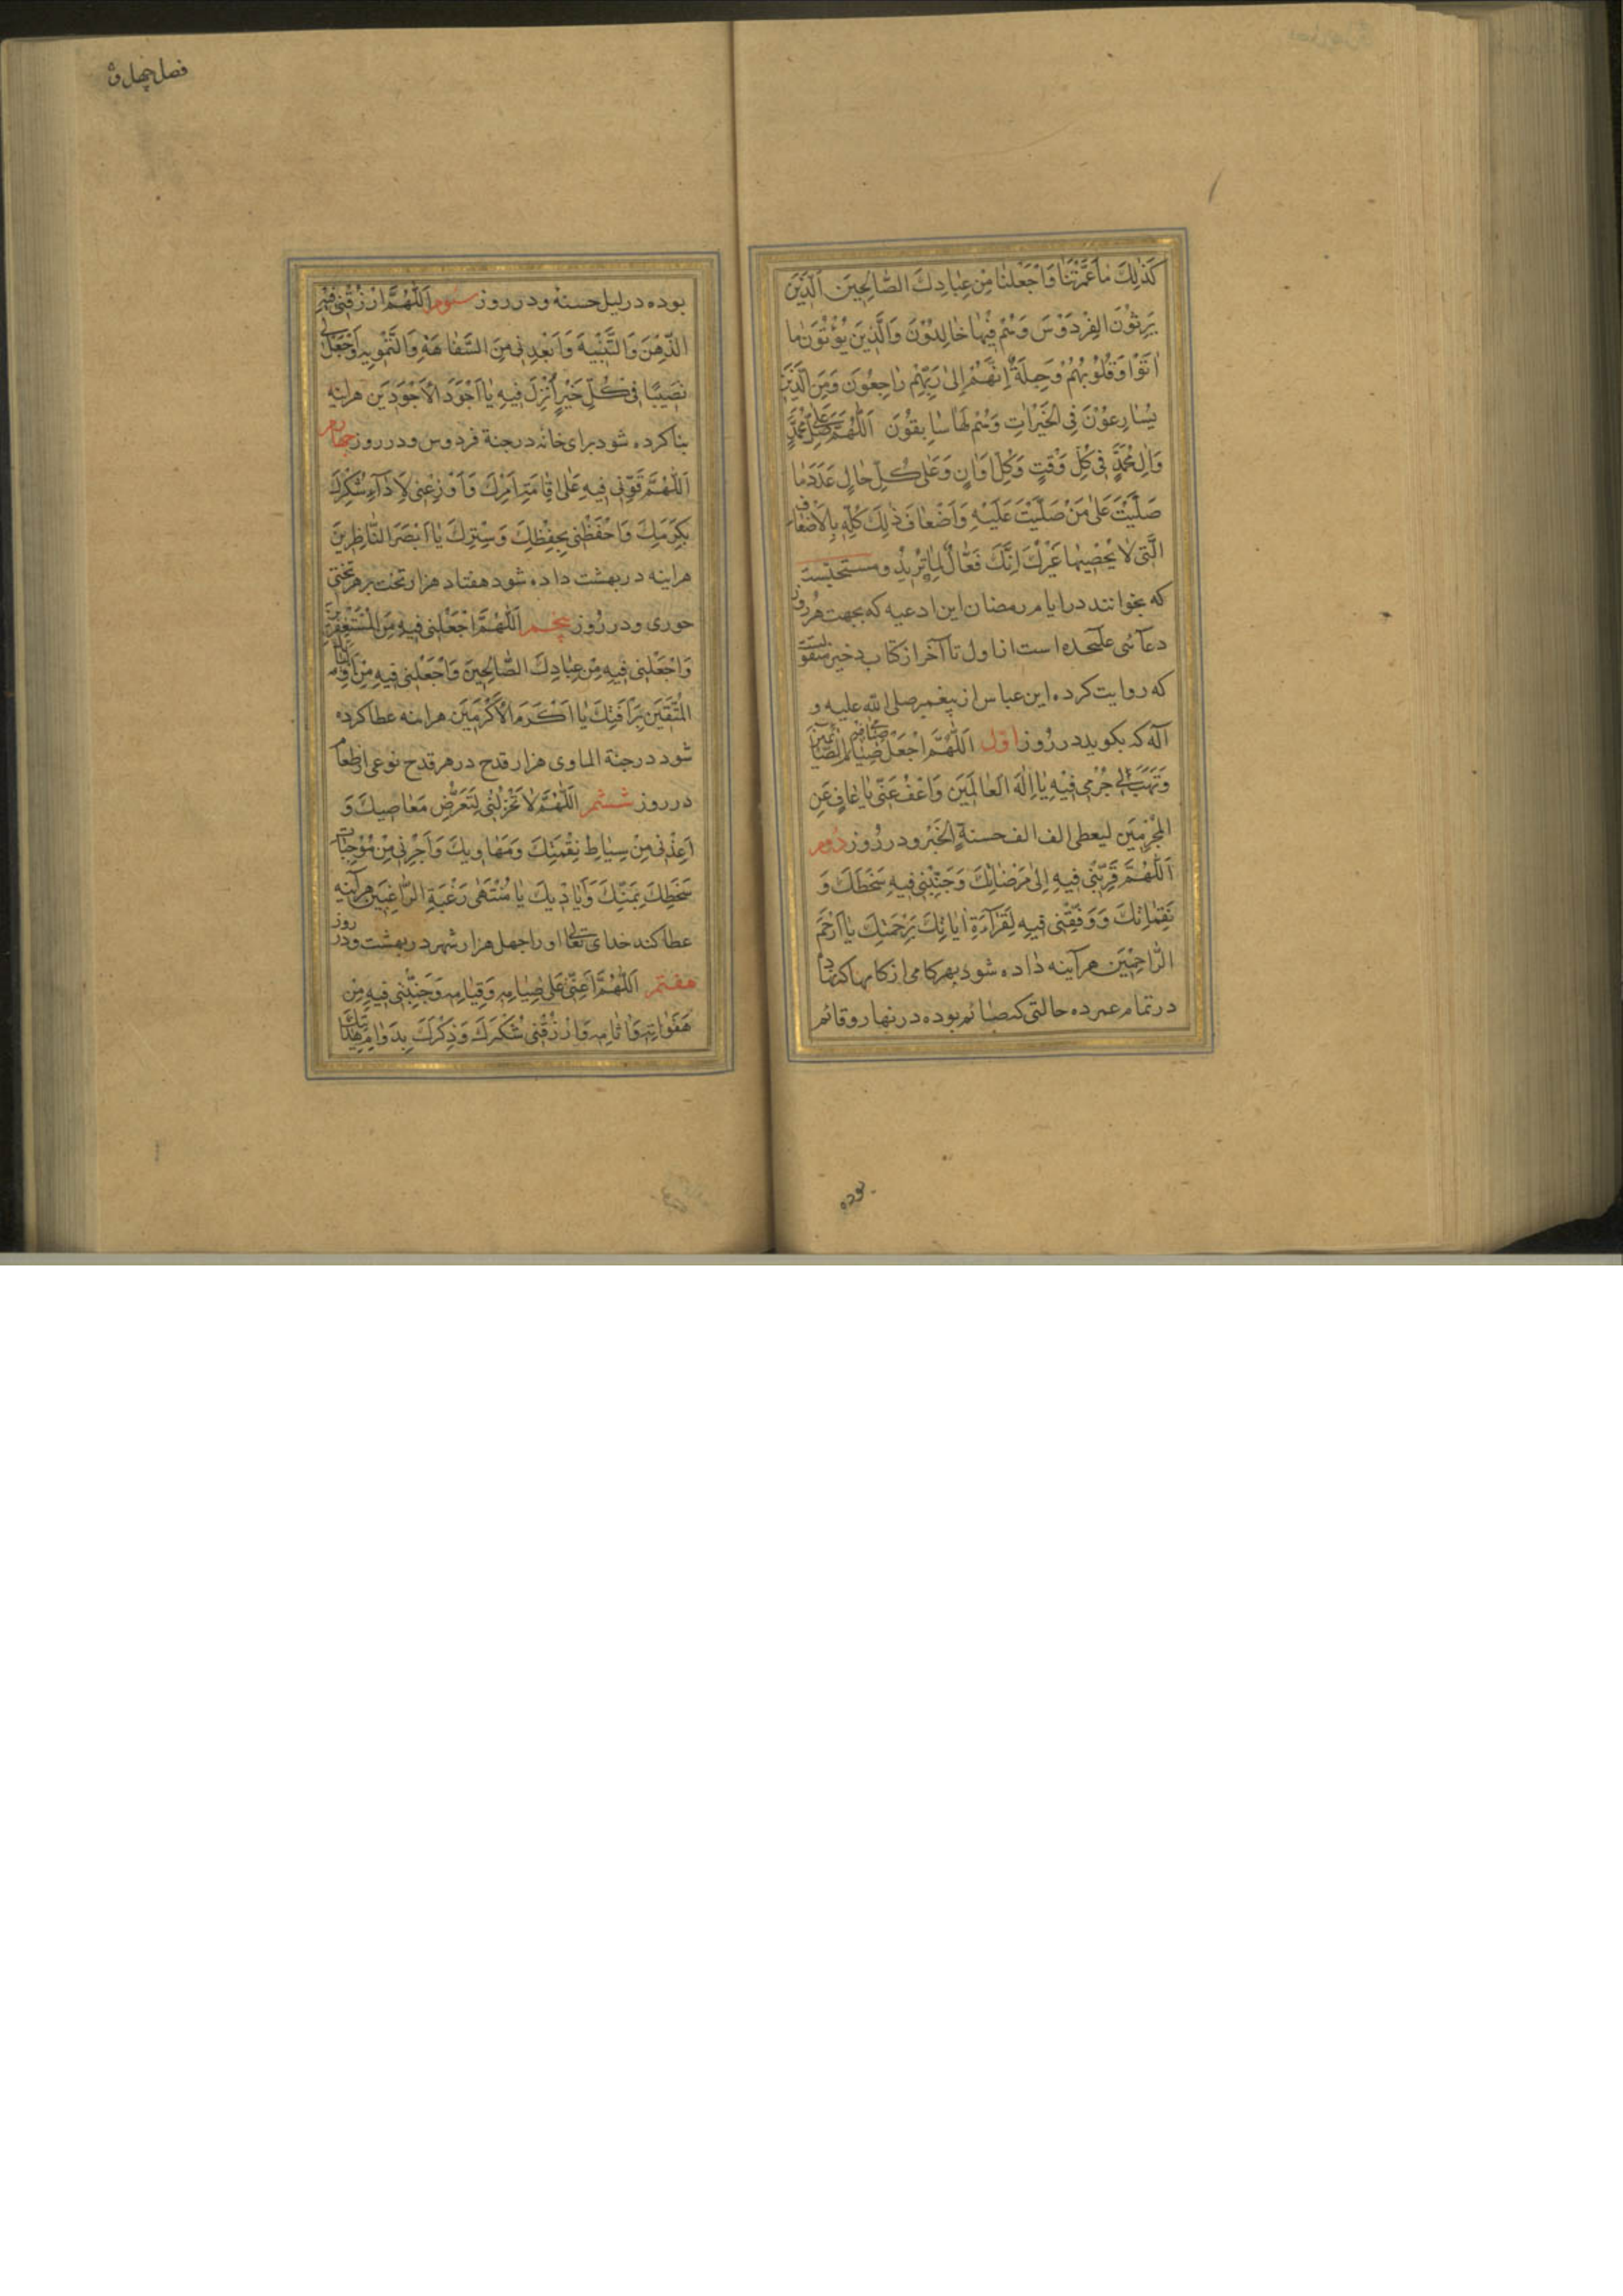 كَذٰلِكَ مٰا عَمَّرْتَنٰا وَاجْعَلْنٰا مِنْ عِبٰادِكَ الصّٰالِحِينَ اَلَّذينَ
يَرِثُونَ الفِرْدَوْسَ وَهُمْ فِيْهٰا خٰالِدُوْنَ وَالَّذِينَ يُؤْتُوْنَ مٰا
اٰتَوْا وَقُلُوْبُهُمْ وَجِلَةٌ اِنَّهُمْ اِلىٰ رَبِّهِمْ رٰاجِعُونَ وَمِنَ الَّذِينَ
يُسٰارِعُوْنَ فِى الخَيْرٰاتِ وَهُمْ لَهٰا سٰابِقُوْنَ اَللّٰهُمَّ صَلِّ عَلىٰ مُحَمَّدٍ
وَاٰلِ مُحَمَّدٍ فى كُلِّ وَقْتٍ وَكُلِّ اَوٰانٍ وَعَلىٰ كُلِّ حٰالٍ عَدَدَ مٰا
صَلَّيْتَ عَلىٰ مَنْ صَلَّيْتَ عَلَيْهِ وَاَضْعٰافَ ذٰلِكَ كُلِّهِ بِالاَضْعٰافِ
الَّتى لاٰ يُحْصِيهٰا غَيْرُكَ اِنَّكَ فَعّٰالٌ لِمٰا تُرِيْدُ و مستحبست
كه بخوانند در ايام رمضان اين ادعيه كه بجهت هر روز
دعآئى عليحده است از اول تا آخر از كتاب ذخيره منقولست
كه روايت كرده ابن عباس از پيغمبر صلى الله عليه و
آله كه بكويد در روز اوّل اَللّٰهُمَّ اجْعَلْ صِيٰامِى فِيهِ صِيٰامَ الصّٰائِمينَ
وَهَبْ لى جُرْمى فيهِ يٰا اِلٰهَ العٰالَمينَ وَاعْفُ عَنّى يٰا عٰافٍ عَنِ
المُجْرِمينَ ليعطى الف الف حسنةٍ الخَبْر و در روز دوم
اَللّٰهُمَّ قَرِّبْنى فيهِ اِلىٰ مَرْضٰاتِكَ وَجَنِّبْنى فيهِ سَخَطَكَ وَ
نَقِمٰاتِكَ وَوَفِّقْنى فيهِ لِقَرٰآءَةِ اٰيٰاتِكَ بِرَحْمَتِكَ يٰا اَرْحَمَ
الرّٰاحِمِيْنَ هرآينه داده شود بهر كامى از كامها كه نهاد
در تمام عمر ده حالتى كه صائم بوده در نهار و قائم
بوده
فصل چهل و
بوده در ليل حسنه و در روز سيوم اَللّٰهُمَّ ارْزُقْنى فيهِ
الذِّهْنَ وَالتَّنْبِيهَ وَاَبْعِدْنى مِنَ السَّفٰاهَةِ وَالتَّمْوِيهِ وَاجْعَلْ لى
نَصيبًا فى كُلِّ خَيْرٍ اُنْزِلَ فيهِ يٰا اَجْوَدَ الاَجْوَدينَ هراينه
بنا كرده شود براى خانه در جنة فردوس و در روز چهارم
اَللّٰهُمَّ قَوِّنى فيهِ عَلىٰ اِقٰامَةِ اَمْرِكَ وَاَوْزِعْنى لاَِدٰآءِ شُكْرِكَ
بِكَرَمِكَ وَاحْفَظْنى بِحِفْظِكَ وَسِتْرِكَ يٰا اَبْصَرَ النّٰاظِرينَ
هراينه در بهشت داده شود هفتاد هزار تخت بر هر تختى
حورى و در روز پنجم اَللّٰهُمَّ اجْعَلْنى فيهِ مِنَ المُسْتَغْفِرينَ
وَاجْعَلْنى فيهِ مِنْ عِبٰادِكَ الصّٰالِحينَ وَاجْعَلْنى فيهِ مِنْ اَوْلِيٰائِكَ
المُتَّقينَ بِرَأفَتِكَ يٰا اَكْرَمَ الاَكْرَمينَ هراينه عطا كرده
شود در جنة الماوى هزار قدح در هر قدح نوعى از طعام
در روز ششم اَللّٰهُمَّ لاٰ تَخْذُلْنى لِتَعَرُّضِ مَعٰاصيكَ وَ
اَعِذْنى مِنْ سِيٰاطِ نِقْمَتِكَ وَمَهٰاويكَ وَاَجِرْنى مِنْ مُوْجِبٰاتِ
سَخَطِكَ بِمَنِّكَ وَاَيٰاديكَ يٰا مُنْتَهىٰ رَغْبَةِ الرّٰاغِبينَ هرآينه
عطا كند خداى تعالى او را چهل هزار شهر در بهشت و در روز
هفتم اَللّٰهُمَّ اَعِنّى عَلىٰ صِيٰامِهِ وَقِيٰامِهِ وَجَنِّبْنى فيهِ مِنْ
هَفَوٰاتِهِ وَاٰثٰامِهِ وَارْزُقْنى شُكْرَكَ وَذِكْرَكَ بِدَوٰامِ هِدٰايَتِكَ